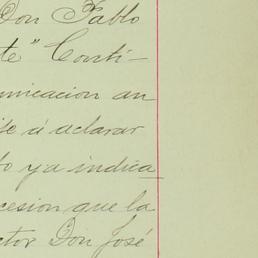 Don Pablo
te" Conti-
municacion an
ite á aclarar
to ya indica
cesion que la
ctor Don José